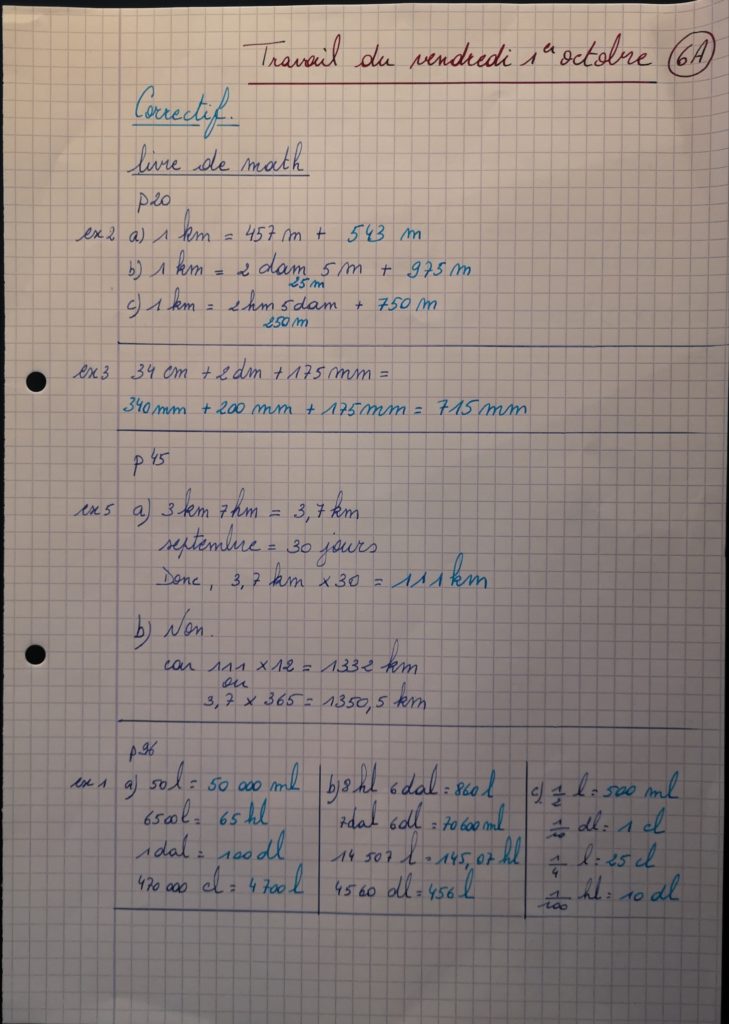 Travail du vendredi 1er octobre 6A
Correctif.
livre de math
p20
ex2 a) 1 km = 457 m + 543 m
b) 1 km = 2 dam 5 m + 975 m
25 m
c) 1 km = 2 hm 5 dam + 750 m
250 m
ex3 34 cm + 2 dm + 175 mm =
340 mm + 200 mm + 175 mm = 715 mm
p 45
ex5 a) 3 km 7 hm = 3,7 km
septembre = 30 jours
Donc, 3,7 km x 30 = 111 km
b) Non.
car 111 x 12 = 1332 km
ou
3,7 x 365 = 1350,5 km
p96
ex1 a) 50 l = 50 000 ml
6500 l = 65 hl
1 dal = 100 dl
470 000 cl = 4 700 l
b) 8 hl 6 dal = 860 l
7 dal 6 dl = 70 600 ml
14 507 l = 145,07 hl
4560 dl = 456 l
c) 1/2 l = 500 ml
1/10 dl = 1 cl
1/4 l = 25 cl
1/100 hl = 10 dl